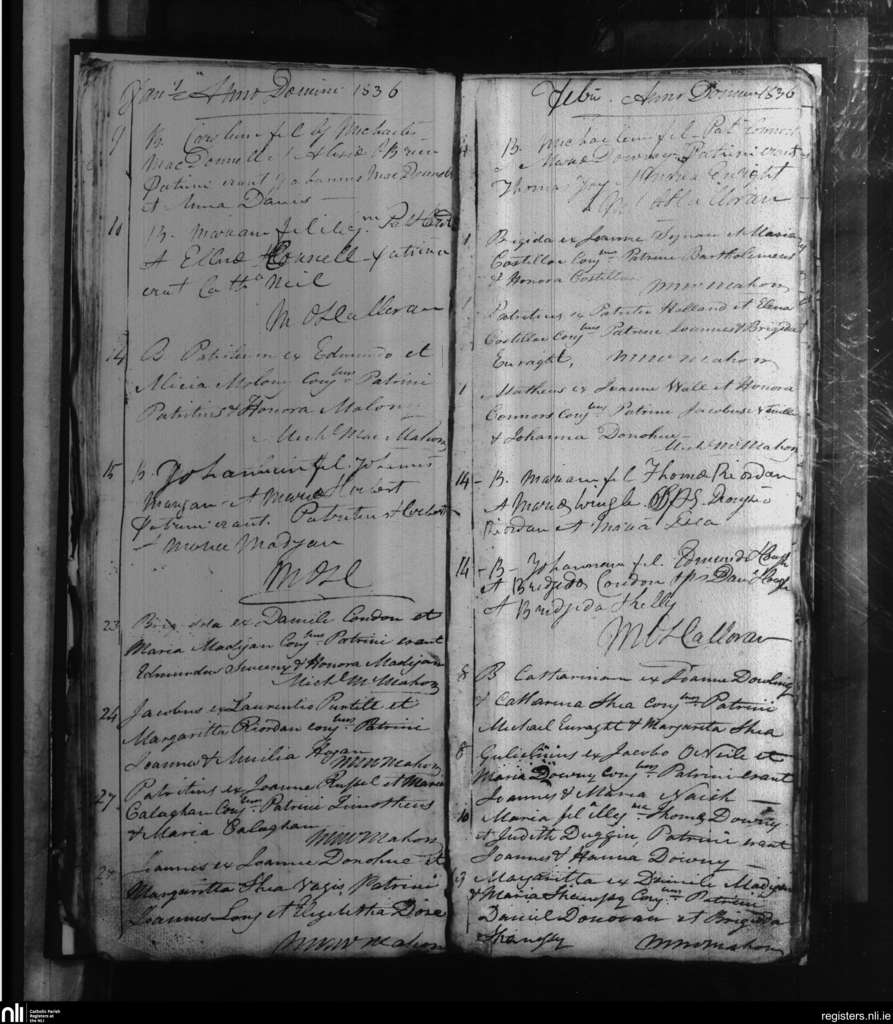 Anno Domini 1836
9 B. fil. Michaelis
MacDonnell &
Patrini erant Johannis MacDonnell
et Anna Davis
10 B. Mariam
A Ellnd Connell Patrini
erat Cath Neil
M OHalloran
14 B Patritium ex Edmundo et
Alicia Molony Conj Patrini
Patritius & Honora Malony
Michl MacMahon
15 B. Johannem fil Johannis
Mangan A Maria Herbert
Patrini erant. Patritius Herbert
Madjan
MOH
23 Brigida ex Daniele Condon et
Maria Madijan Conjbus Patrini erant
Edmundus Sweeny & Honora Madijan
Michl McMahon
24 Jacobus ex Laurentio Purtill et
Margaritta Riordan conjbus Patrini
Joannes & Amilia Hogan
McMahon
27 Patritius ex Joanne Russel et Maria
Calaghan Conj Patrini Timotheus
& Maria Calaghan
McMahon
Joannes ex Joanne Donohue et
Margaritta Shea Vagis Patrini
Joannes Long et Elizabetha Dore
McMahon
Anno Domini 1836
B. Michaelem fil Patt Connors
Downey Patrini erant
Thomas Enright
M OHalloran
1 Brigida ex Joanne et Maria
Costelloe Conj Patrini Bartholemeus
& Honora Costelloe
McMahon
1 Patritius ex Patritio Holland et Elena
Costelloe Conjbus Patrini Joannes & Brigida
Euraght, McMahon
1 Matheus ex Joanne Wall et Honora
Connors Conj Patrini Jacobus
& Johanna Donohue
Michl McMahon
14 - B. Mariam fil Thomæ Riordan
A Maria
Riordan et Maria Shea
14 - B - Johannem fil. Edmundi
A Bridjeda Condon
A Bridjeda Shelly
M OHalloran
8 B Catharinam ex Joanne Dowling
& Catharina Shea conjbus Patrini
Michael Euraght & Margarita Shea
8 Gulielmus ex Jacobo ONeile et
Maria Downy Conjbus Patrini erant
Joannes & Maria Naish
10 Maria fil Thoma Downy
et Judith Duggin, Patrini erant
Joannes & Hanna Downy
Margaritta ex Daniele Madijan
& Maria Conj Patrini
Daniel Donovan et Brigida
McMahon
nli
Catholic Parish
Registers at
the NLI
registers.nli.ie